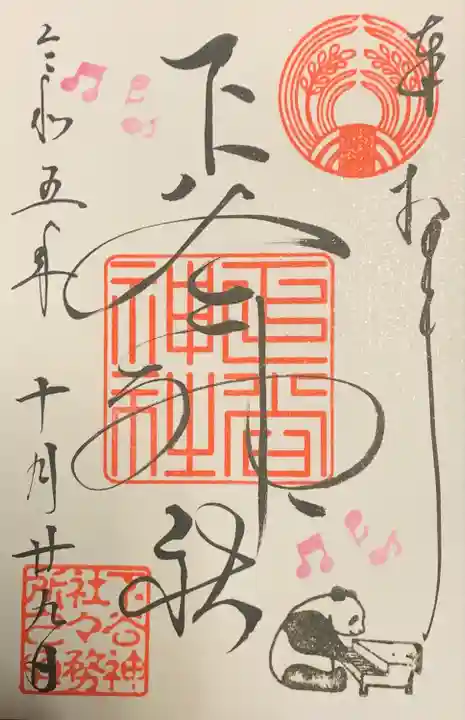 奉拝
下谷神社
下谷
神社
令和五年 十月廿九日
下谷神
社々務
所之印